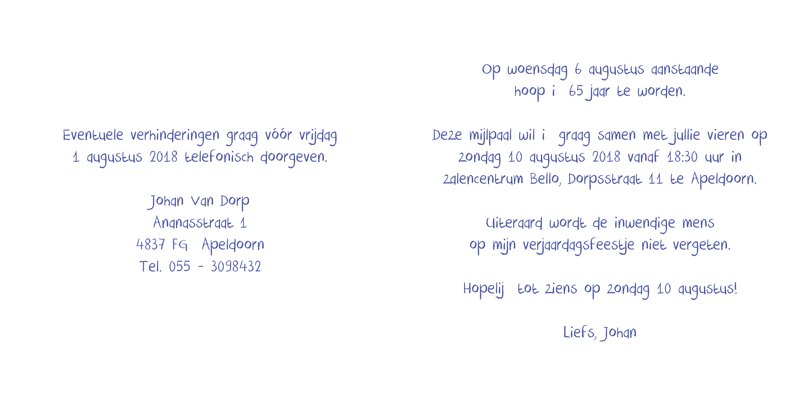 Eventuele verhinderingen graag vóór vrijdag
1 augustus 2018 telefonisch doorgeven.
Johan Van Dorp
Ananasstraat 1
4837 FG Apeldoorn
Tel. 055 - 3098432
Op woensdag 6 augustus aanstaande
hoop i 65 jaar te worden.
Deze mijlpaal wil i graag samen met jullie vieren op
zondag 10 augustus 2018 vanaf 18:30 uur in
zalencentrum Bello, Dorpsstraat 11 te Apeldoorn.
Uiteraard wordt de inwendige mens
op mijn verjaardagsfeestje niet vergeten.
Hopelij tot ziens op zondag 10 augustus!
Liefs, Johan